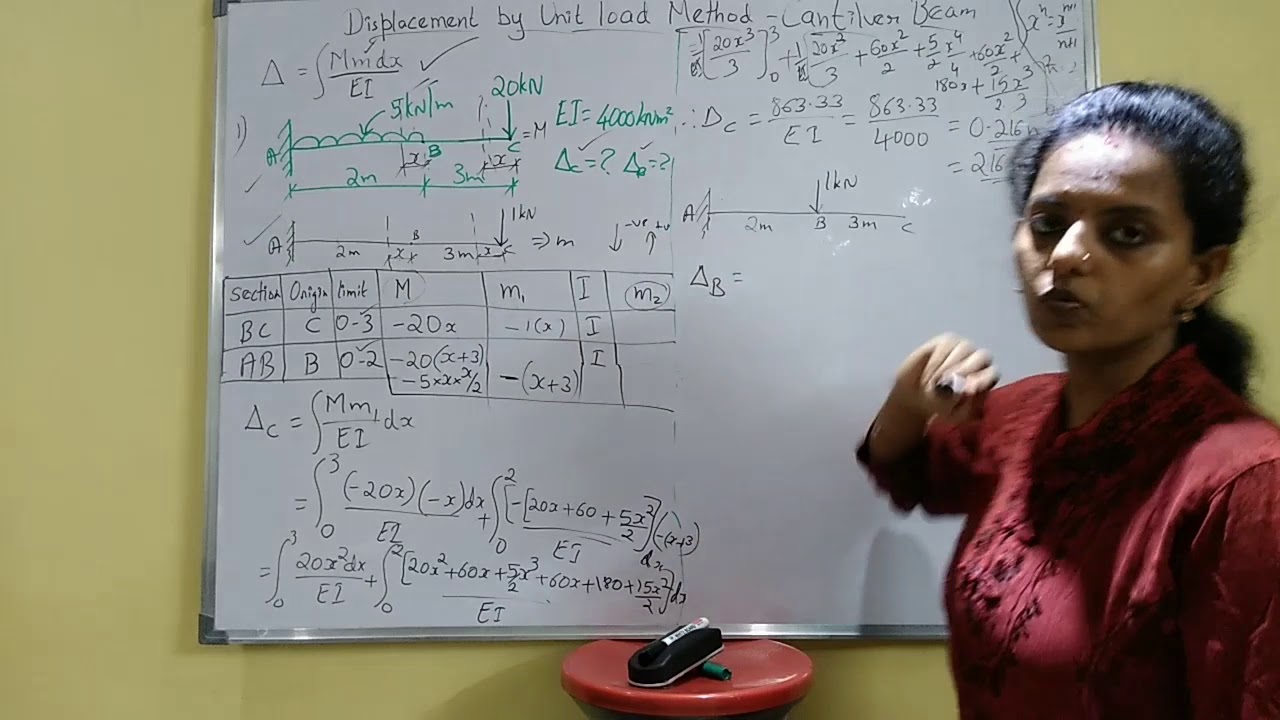 Displacement by Unit load Method - Cantilver Beam
Δ = ∫ Mmdx / EI
1)
5kN/m
20kN
EI = 4000kNm²
Δc = ? ΔB = ?
A x B x C = M
2m 3m
1kN
A 2m x B 3m x C ⇒ m
↓ -ve ↑ +ve
Section Origin limit M m₁ I m₂
BC C 0-3 -20x -1(x) I
AB B 0-2 -20(x+3) -5×x×x/2 -(x+3) I
Δc = ∫ Mm₁/EI dx
= ∫₀³ (-20x)(-x)dx / EI + ∫₀² [-[20x+60+5x²/2](-(x+3)) / EI dx
= ∫₀³ 20x²dx / EI + ∫₀² [20x²+60x+5/2x³+60x+180+15x²/2]dx / EI
[20x³/3]₀³ + 20x²/3 + 60x²/2 + 5/2 x⁴/4 + 60x²/2 +
180x + 15x³/2 3
xⁿ = xⁿ⁺¹/n+1
∴ Dc = 863.33/EI = 863.33/4000 = 0.216
= 216
1kN
A 2m B 3m C
ΔB =